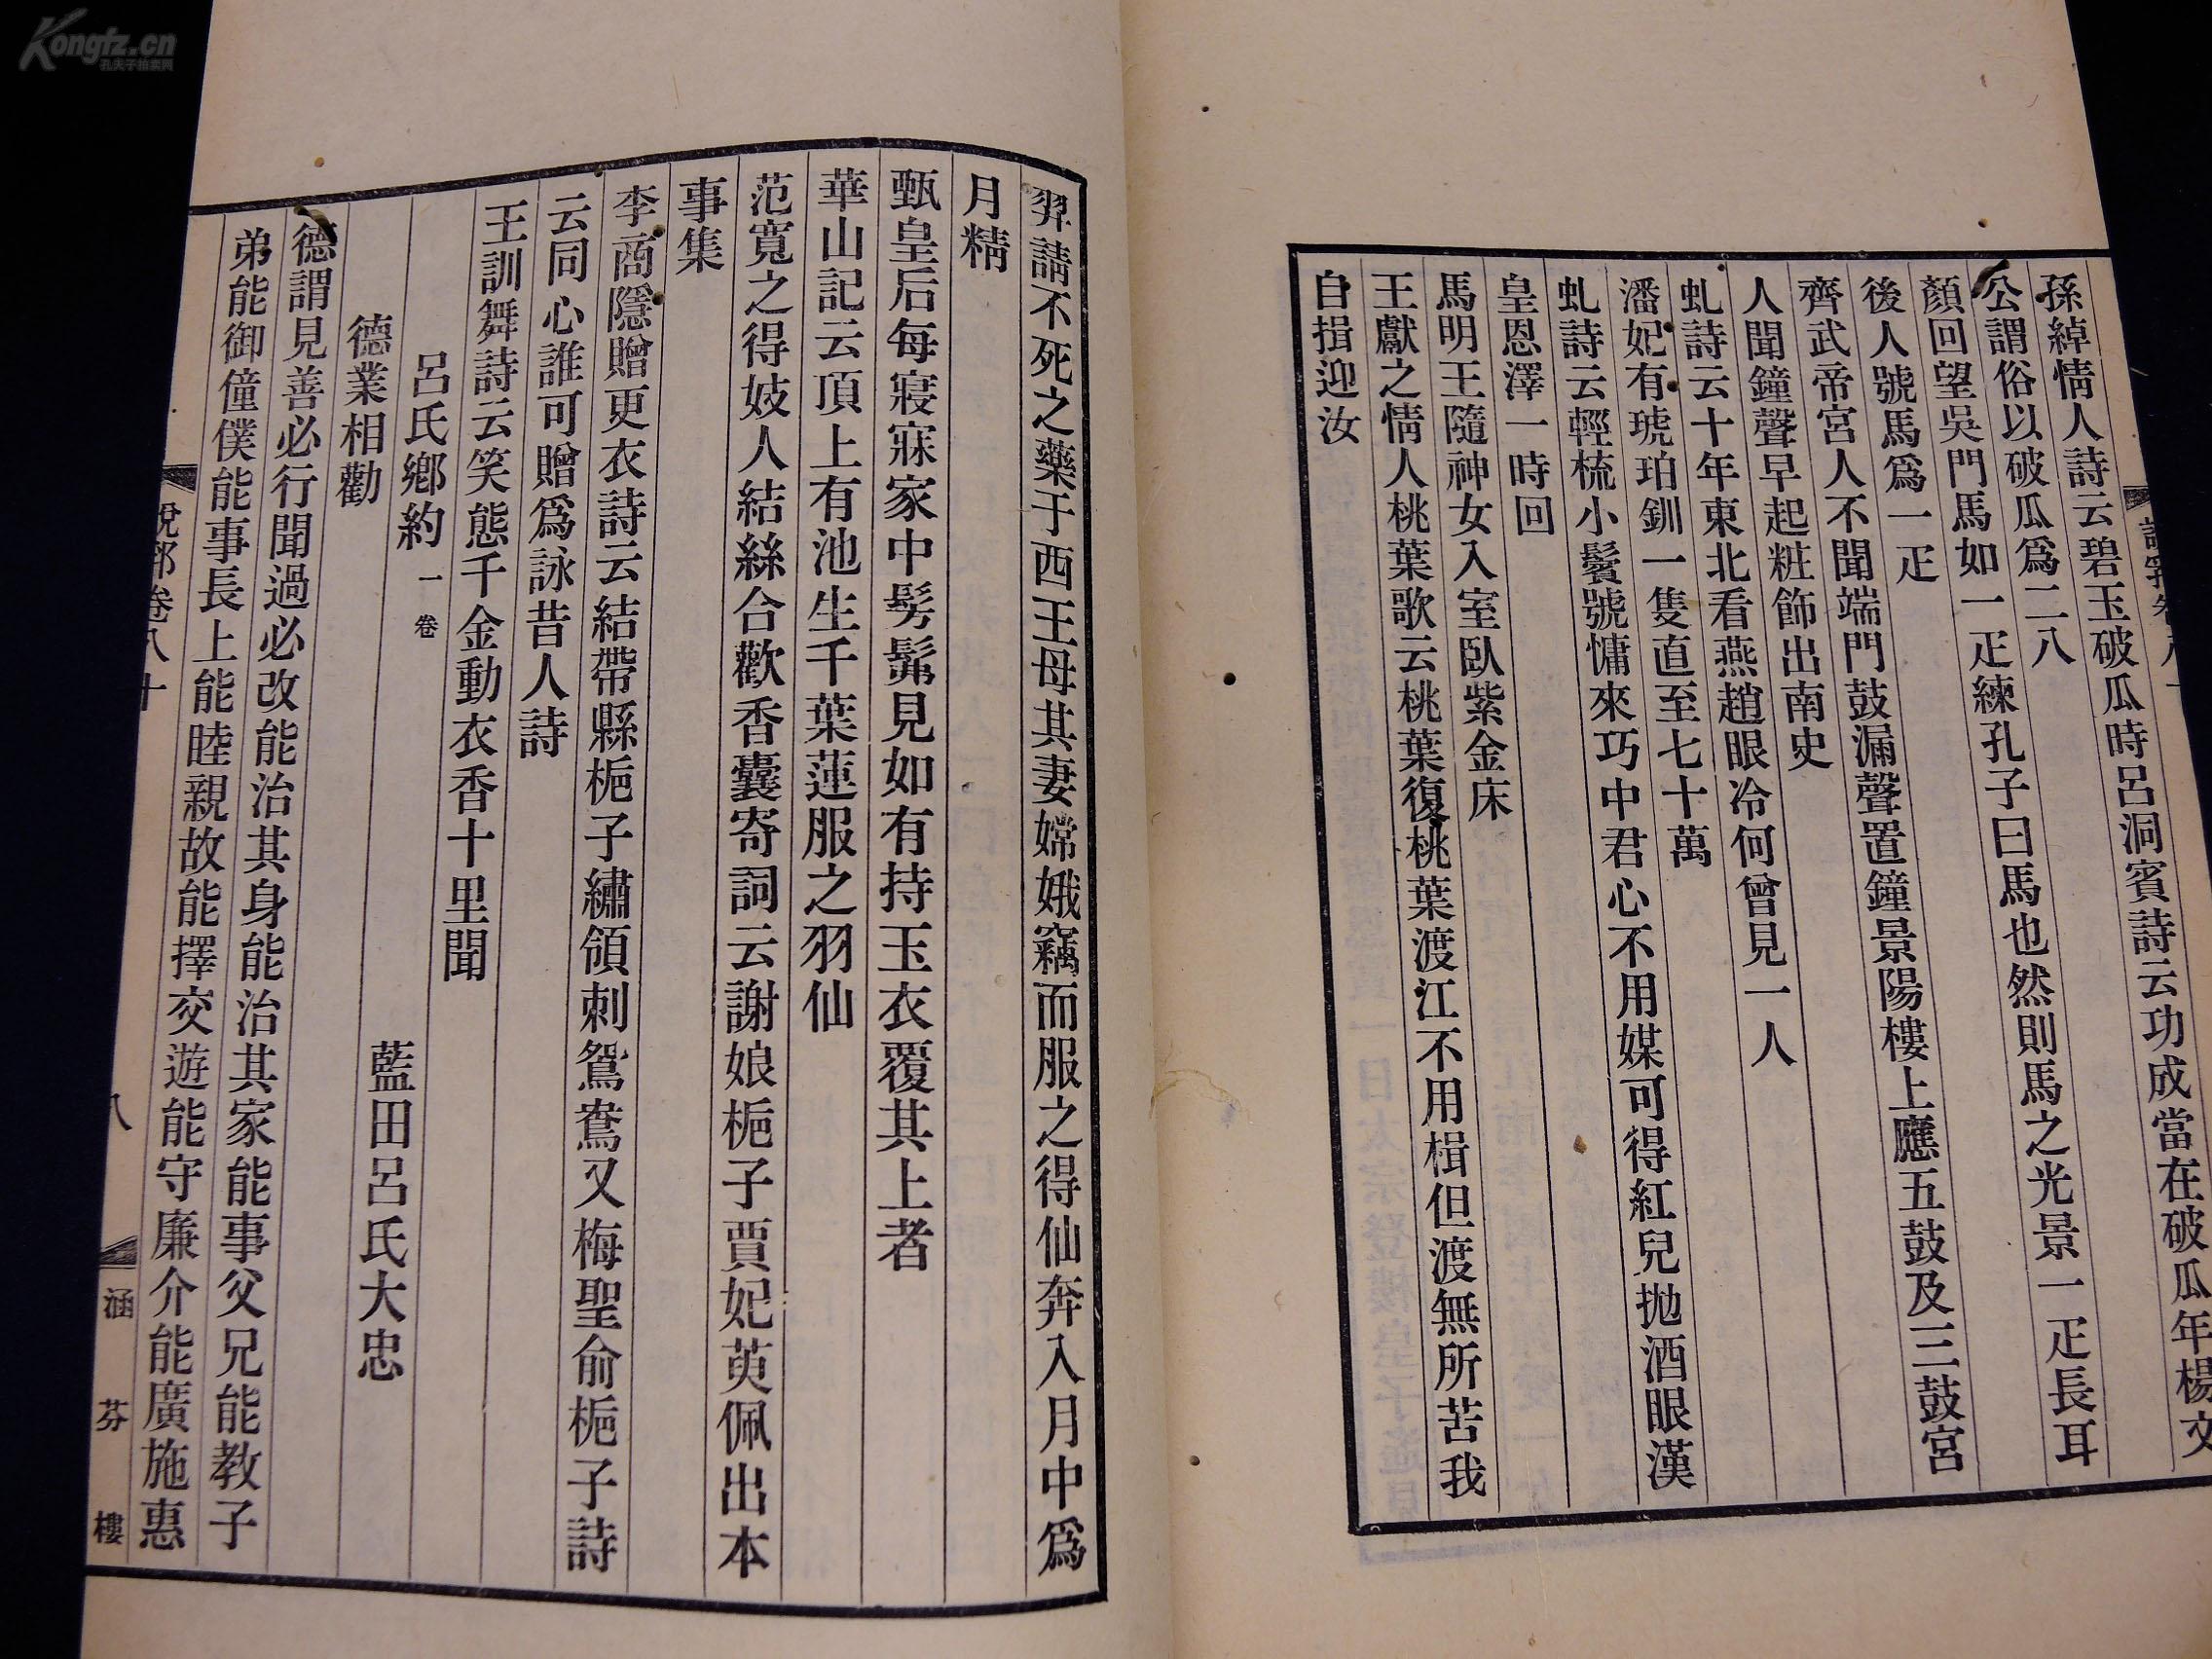 孫綽情人詩云碧玉破瓜時呂洞賓詩云功成當在破瓜年楊文
公謂俗以破瓜爲二八
顏回望吳門馬如一疋練孔子曰馬也然則馬之光景一疋長耳
後人號馬爲一疋
齊武帝宮人不聞端門鼓漏聲置鐘景陽樓上應五鼓及三鼓宮
人聞鐘聲早起粧飾出南史
虬詩云十年東北看燕趙眼冷何曾見一人
潘妃有琥珀釧一隻直至七十萬
虬詩云輕梳小鬟號慵來巧中君心不用媒可得紅兒拋酒眼漢
皇恩澤一時回
馬明王隨神女入室臥紫金床
王獻之情人桃葉歌云桃葉復桃葉渡江不用楫但渡無所苦我
自揖迎汝
羿請不死之藥于西王母其妻嫦娥竊而服之得仙奔入月中爲
月精
甄皇后每寢寐家中髣髴見如有持玉衣覆其上者
華山記云頂上有池生千葉蓮服之羽仙
范寬之得妓人結絲合歡香囊寄詞云謝娘梔子賈妃萸佩出本
事集
李商隱贈更衣詩云結帶縣梔子繡領刺鴛鴦又梅聖俞梔子詩
云同心誰可贈爲詠昔人詩
王訓舞詩云笑態千金動衣香十里聞
呂氏鄉約 一卷
藍田呂氏大忠
德業相勸
德謂見善必行聞過必改能治其身能治其家能事父兄能教子
弟能御僮僕能事長上能睦親故能擇交遊能守廉介能廣施惠
說郛卷八十
八
涵芬樓
Kongfz.cn
孔夫子拍卖网